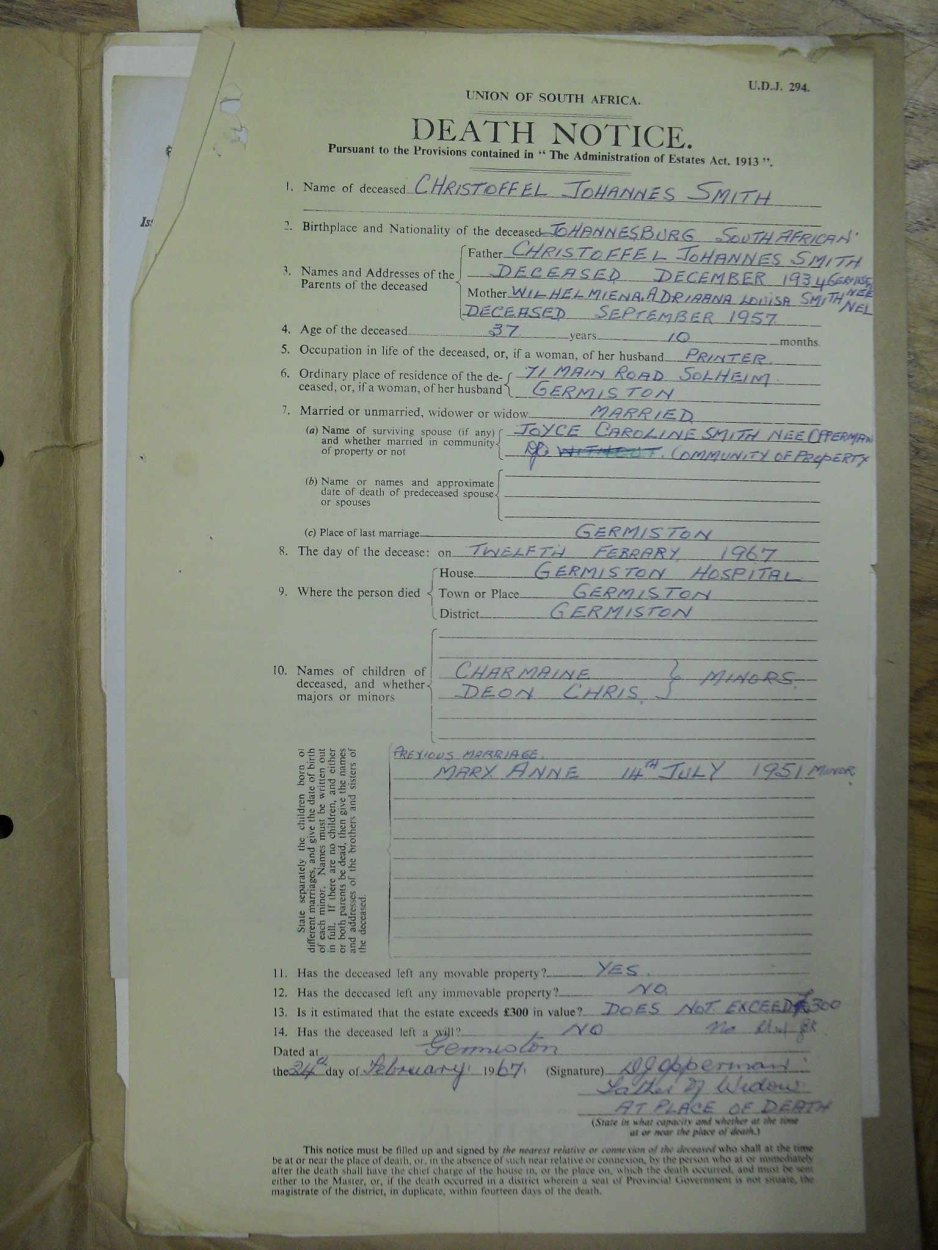 U.D.J. 294.
UNION OF SOUTH AFRICA.
DEATH NOTICE.
Pursuant to the Provisions contained in " The Administration of Estates Act. 1913 ".
1. Name of deceased CHRISTOFFEL JOHANNES SMITH
2. Birthplace and Nationality of the deceased JOHANNESBURG SOUTH AFRICAN
3. Names and Addresses of the Parents of the deceased
Father CHRISTOFFEL JOHANNES SMITH
DECEASED DECEMBER 1934
Mother WILHELMIENA ADRIAANA LOUISA SMITH NEE NEL
DECEASED SEPTEMBER 1957
4. Age of the deceased 37 years 10 months.
5. Occupation in life of the deceased, or, if a woman, of her husband PRINTER.
6. Ordinary place of residence of the de- 71 MAIN ROAD SOLHEIM.
ceased, or, if a woman, of her husband GERMISTON
7. Married or unmarried, widower or widow MARRIED
(a) Name of surviving spouse (if any) JOYCE CAROLINE SMITH NEE OPPERMAN
and whether married in community WITHOUT. COMMUNITY OF PROPERTY
of property or not
(b) Name or names and approximate
date of death of predeceased spouse
or spouses
(c) Place of last marriage GERMISTON
8. The day of the decease: on TWELFTH FEBRARY 1967
9. Where the person died
House GERMISTON HOSPITAL
Town or Place GERMISTON
District GERMISTON
10. Names of children of
deceased, and whether
majors or minors
CHARMAINE
DEON CHRIS
MINORS
State separately the children born of
different marriages, and give the date of birth
of each minor. Names must be written out
in full. If there are no children, and either
or both parents be dead, then give the names
and addresses of the brothers and sisters of
the deceased.
PREVIOUS MARRIAGE.
MARY ANNE 14TH JULY 1951 MINOR
11. Has the deceased left any movable property? YES.
12. Has the deceased left any immovable property? NO
13. Is it estimated that the estate exceeds £300 in value? DOES NOT EXCEED £300
14. Has the deceased left a will? NO
Dated at Germiston
the 24th day of February 1967. (Signature) DJ Opperman
Father of Widow
AT PLACE OF DEATH
(State in what capacity and whether at the time
at or near the place of death.)
This notice must be filled up and signed by the nearest relative or connexion of the deceased who shall at the time
be at or near the place of death, or, in the absence of such near relative or connexion, by the person who at or immediately
after the death shall have the chief charge of the house in, or the place on, which the death occurred, and must be sent
either to the Master, or, if the death occurred in a district wherein a seat of Provincial Government is not situate, the
magistrate of the district, in duplicate, within fourteen days of the death.